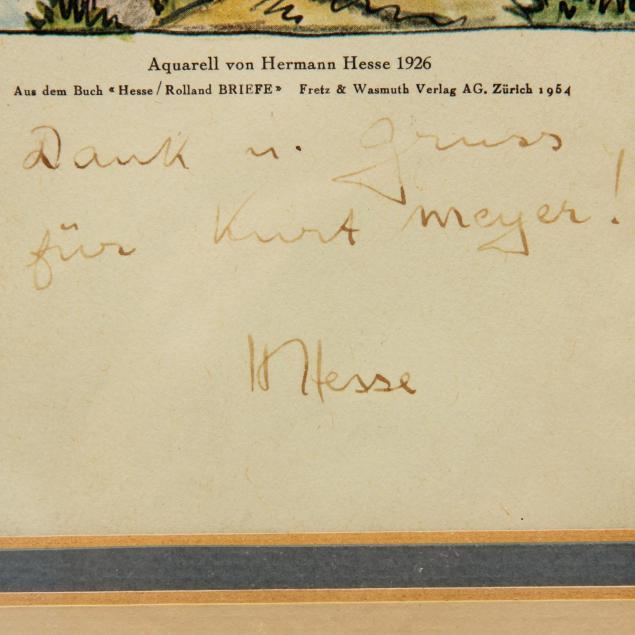 Aquarell von Hermann Hesse 1926
Aus dem Buch «Hesse/Rolland BRIEFE» Fretz & Wasmuth Verlag AG. Zürich 1954
Dank u. Gruss
für Kurt Meyer!
H Hesse